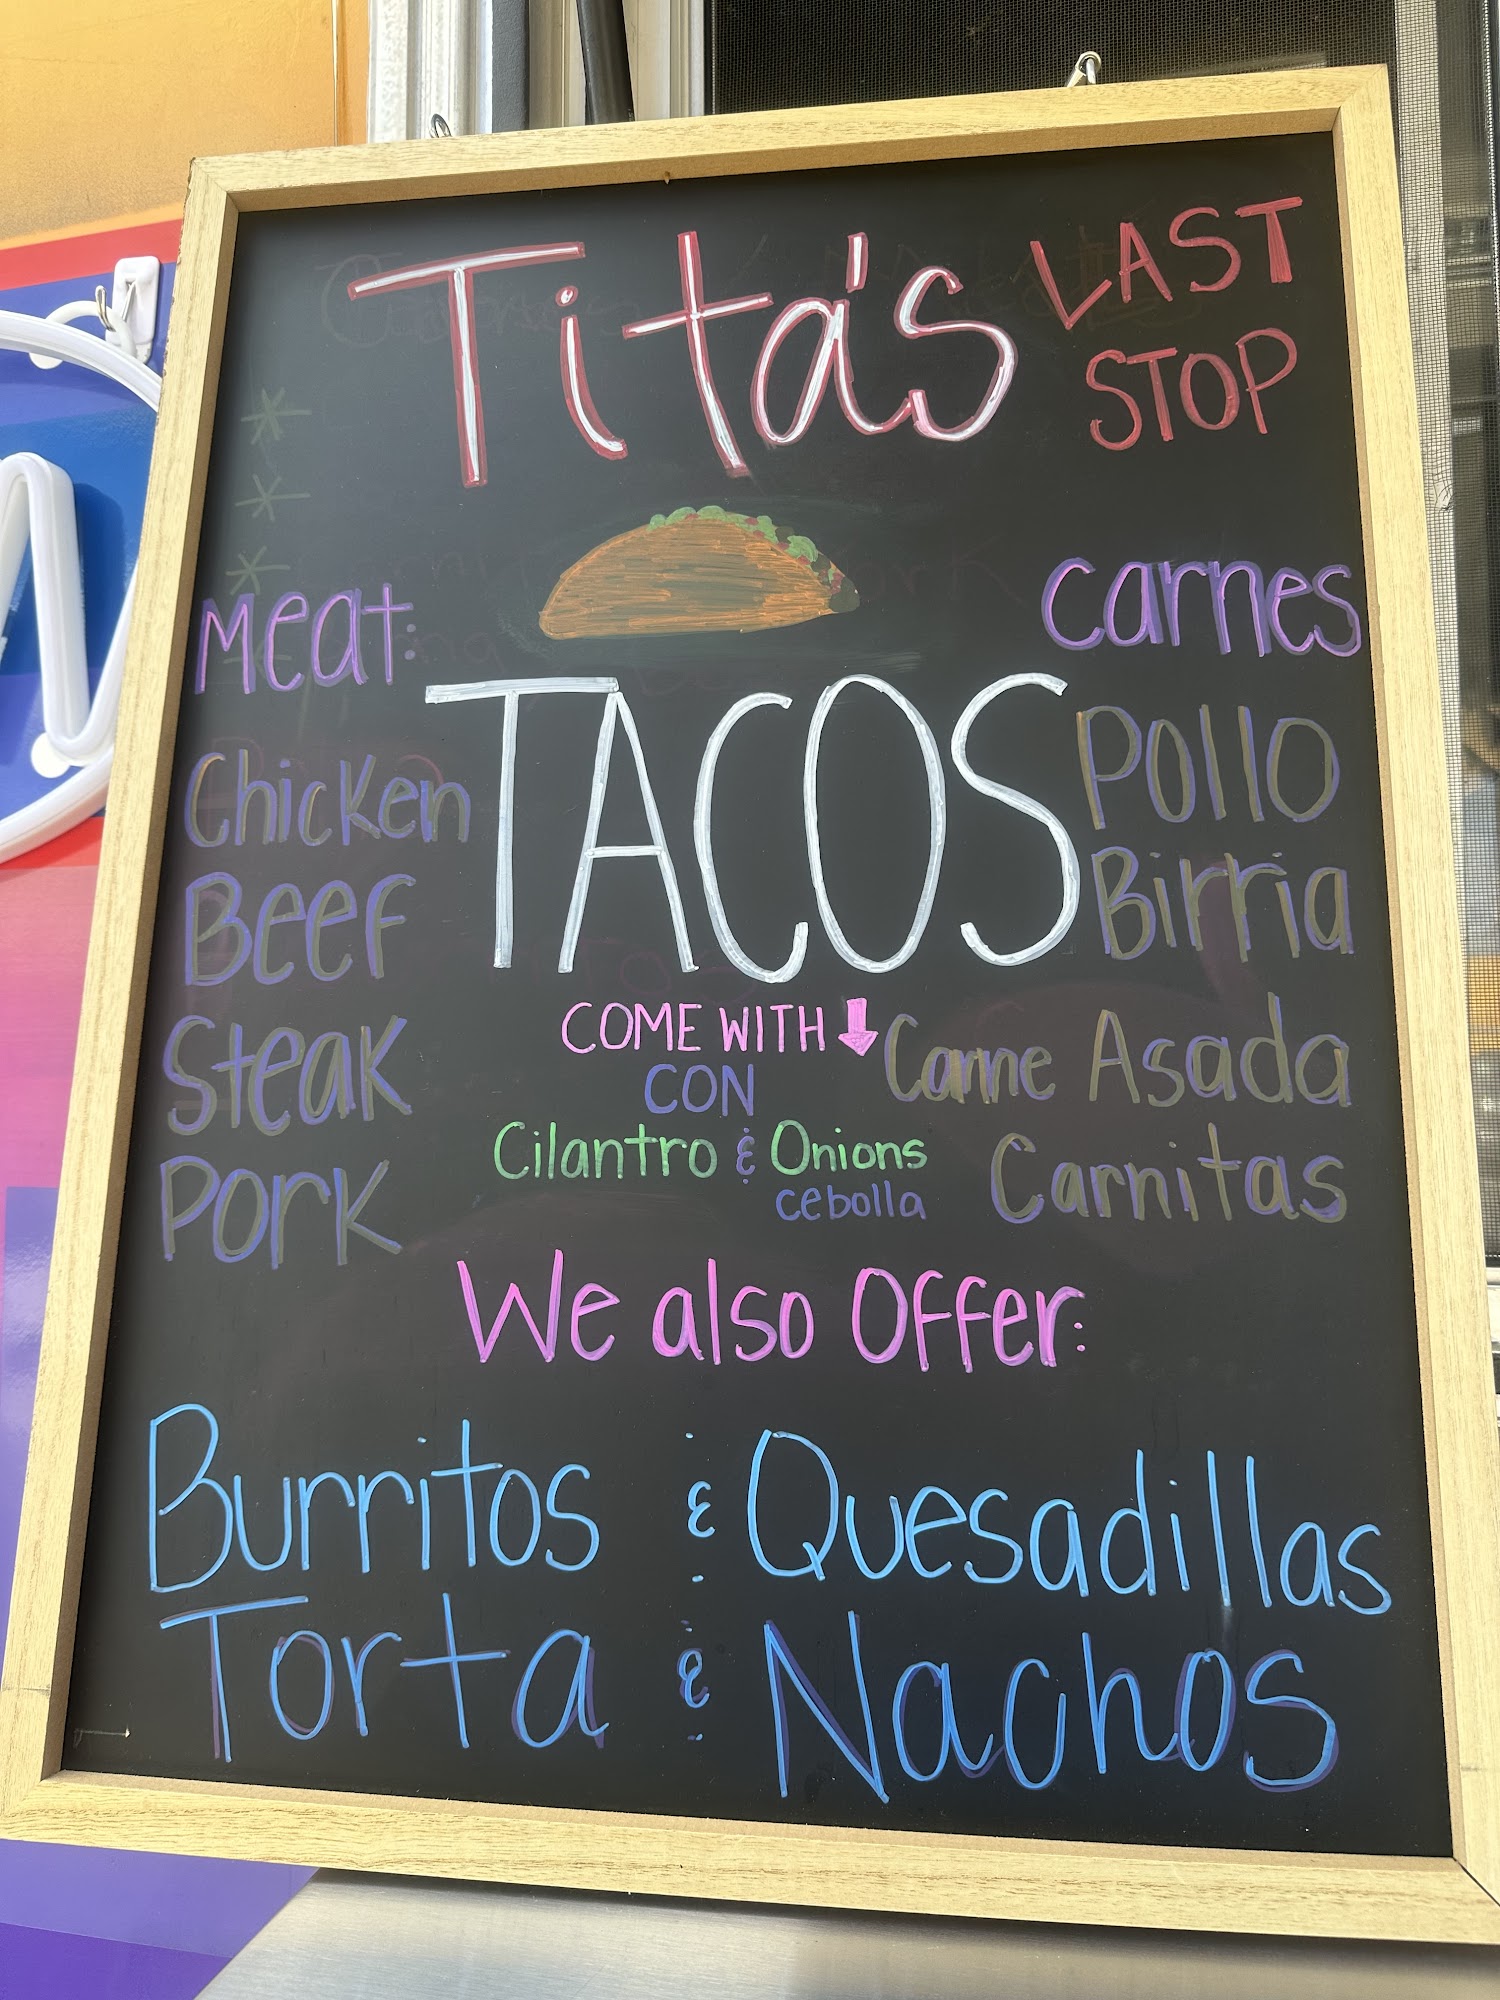 Tita's LAST
STOP
Meat:
Carnes
TACOS
Chicken
Beef
Steak
Pork
Pollo
Birria
Carne Asada
Carnitas
COME WITH
CON
Cilantro & Onions
cebolla
We also Offer:
Burritos & Quesadillas
Torta & Nachos